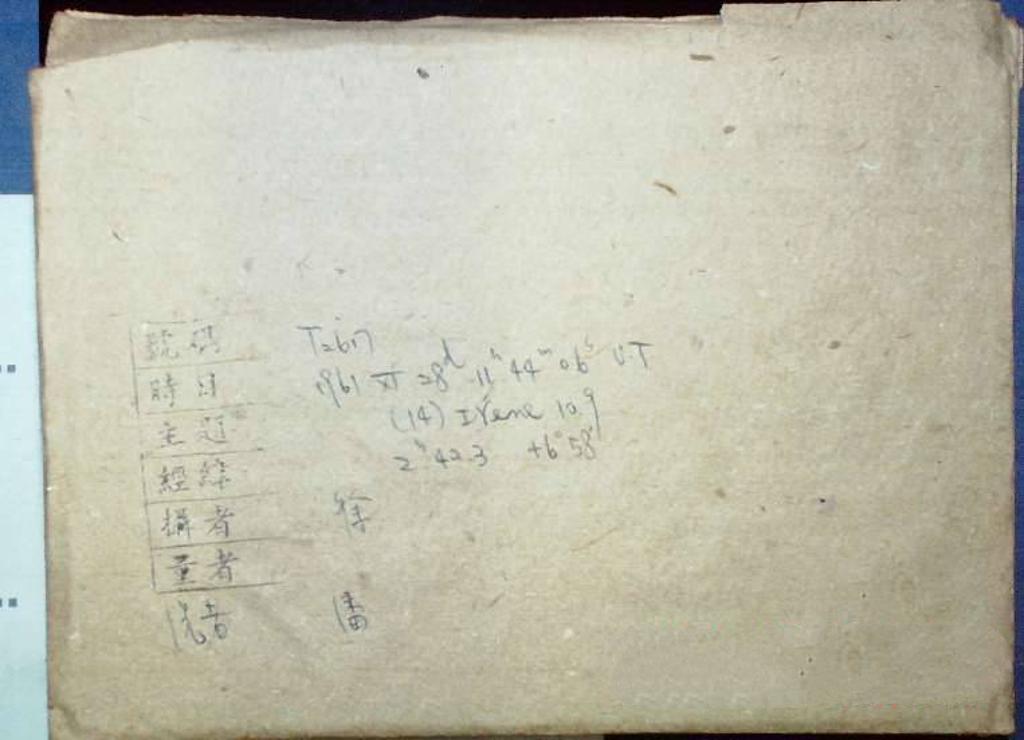 號碼 T2617
時日 1961 XI 28d 11h 44m 06s U.T
主題 (14) Irene 10.9
經緯 2h 42.3 +6° 58'
攝者 徐
量者
洗者 潘